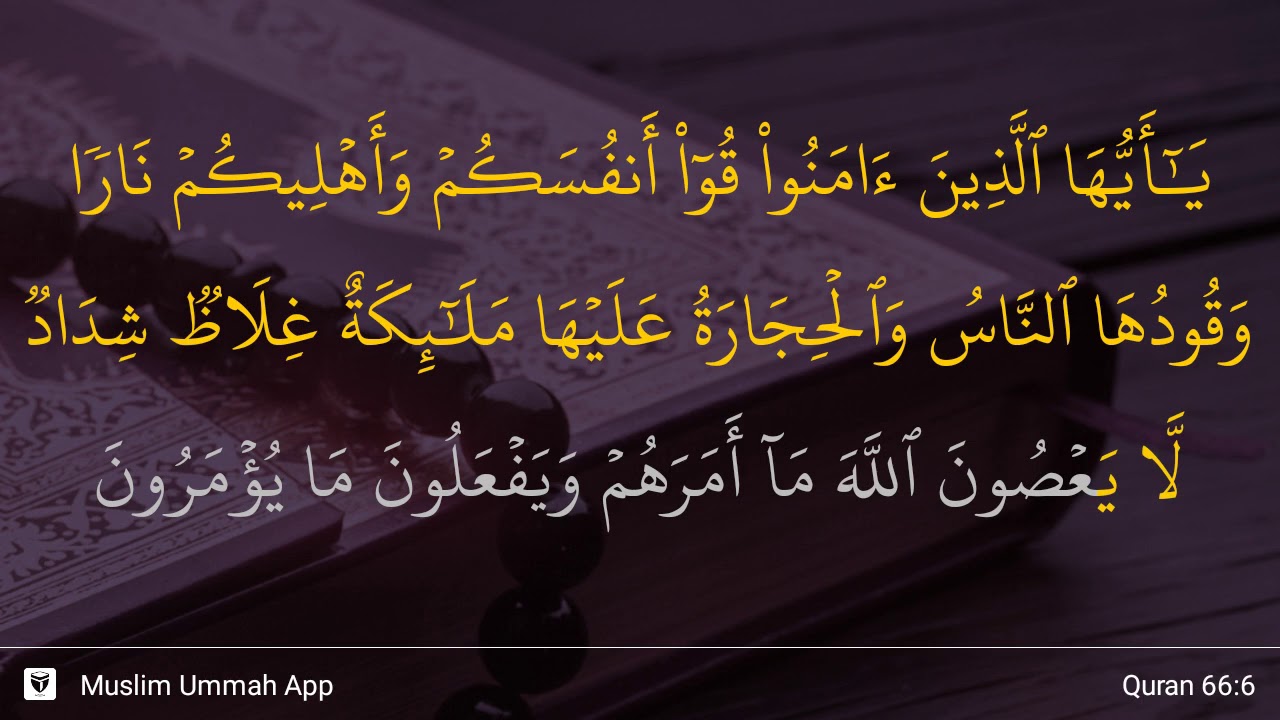 يَـٰٓأَيُّهَا ٱلَّذِينَ ءَامَنُوا۟ قُوٓا۟ أَنفُسَكُمْ وَأَهْلِيكُمْ نَارًا
وَقُودُهَا ٱلنَّاسُ وَٱلْحِجَارَةُ عَلَيْهَا مَلَـٰٓئِكَةٌ غِلَاظٌ شِدَادٌ
لَّا يَعْصُونَ ٱللَّهَ مَآ أَمَرَهُمْ وَيَفْعَلُونَ مَا يُؤْمَرُونَ
Muslim Ummah App
Quran 66:6